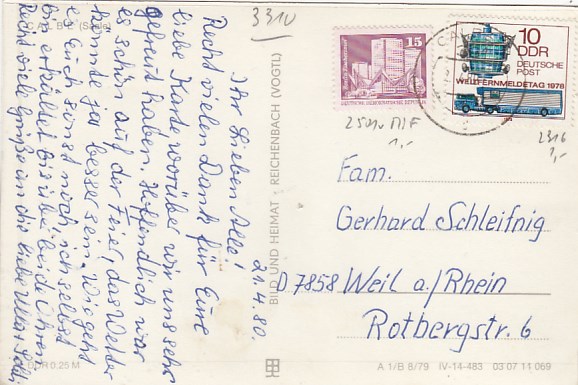 CALBE (Saale)
3310
21.4.80.
Ihr Lieben Alle!
Recht vielen Dank für Eure
liebe Karte worüber wir uns sehr
gefreut haben. Hoffendlich war
es schön auf der Feier, das Wetter
könnte ja besser sein. Wie geht
es Euch sonst noch, ich selbst
bin erkältet bis über beide Ohren
Recht viele Grüße an die liebe
DDR 0,25 M
BILD UND HEIMAT · REICHENBACH (VOGTL)
15
DEUTSCHE DEMOKRATISCHE REPUBLIK
10
DDR
DEUTSCHE
POST
WELTFERNMELDETAG 1978
CAL
2501v MIF
1,-
2316
1,-
Fam.
Gerhard Schleifnig
D 7858 Weil a./Rhein
Rotbergstr. 6
A 1/B 8/79 IV-14-483 03 07 11 069